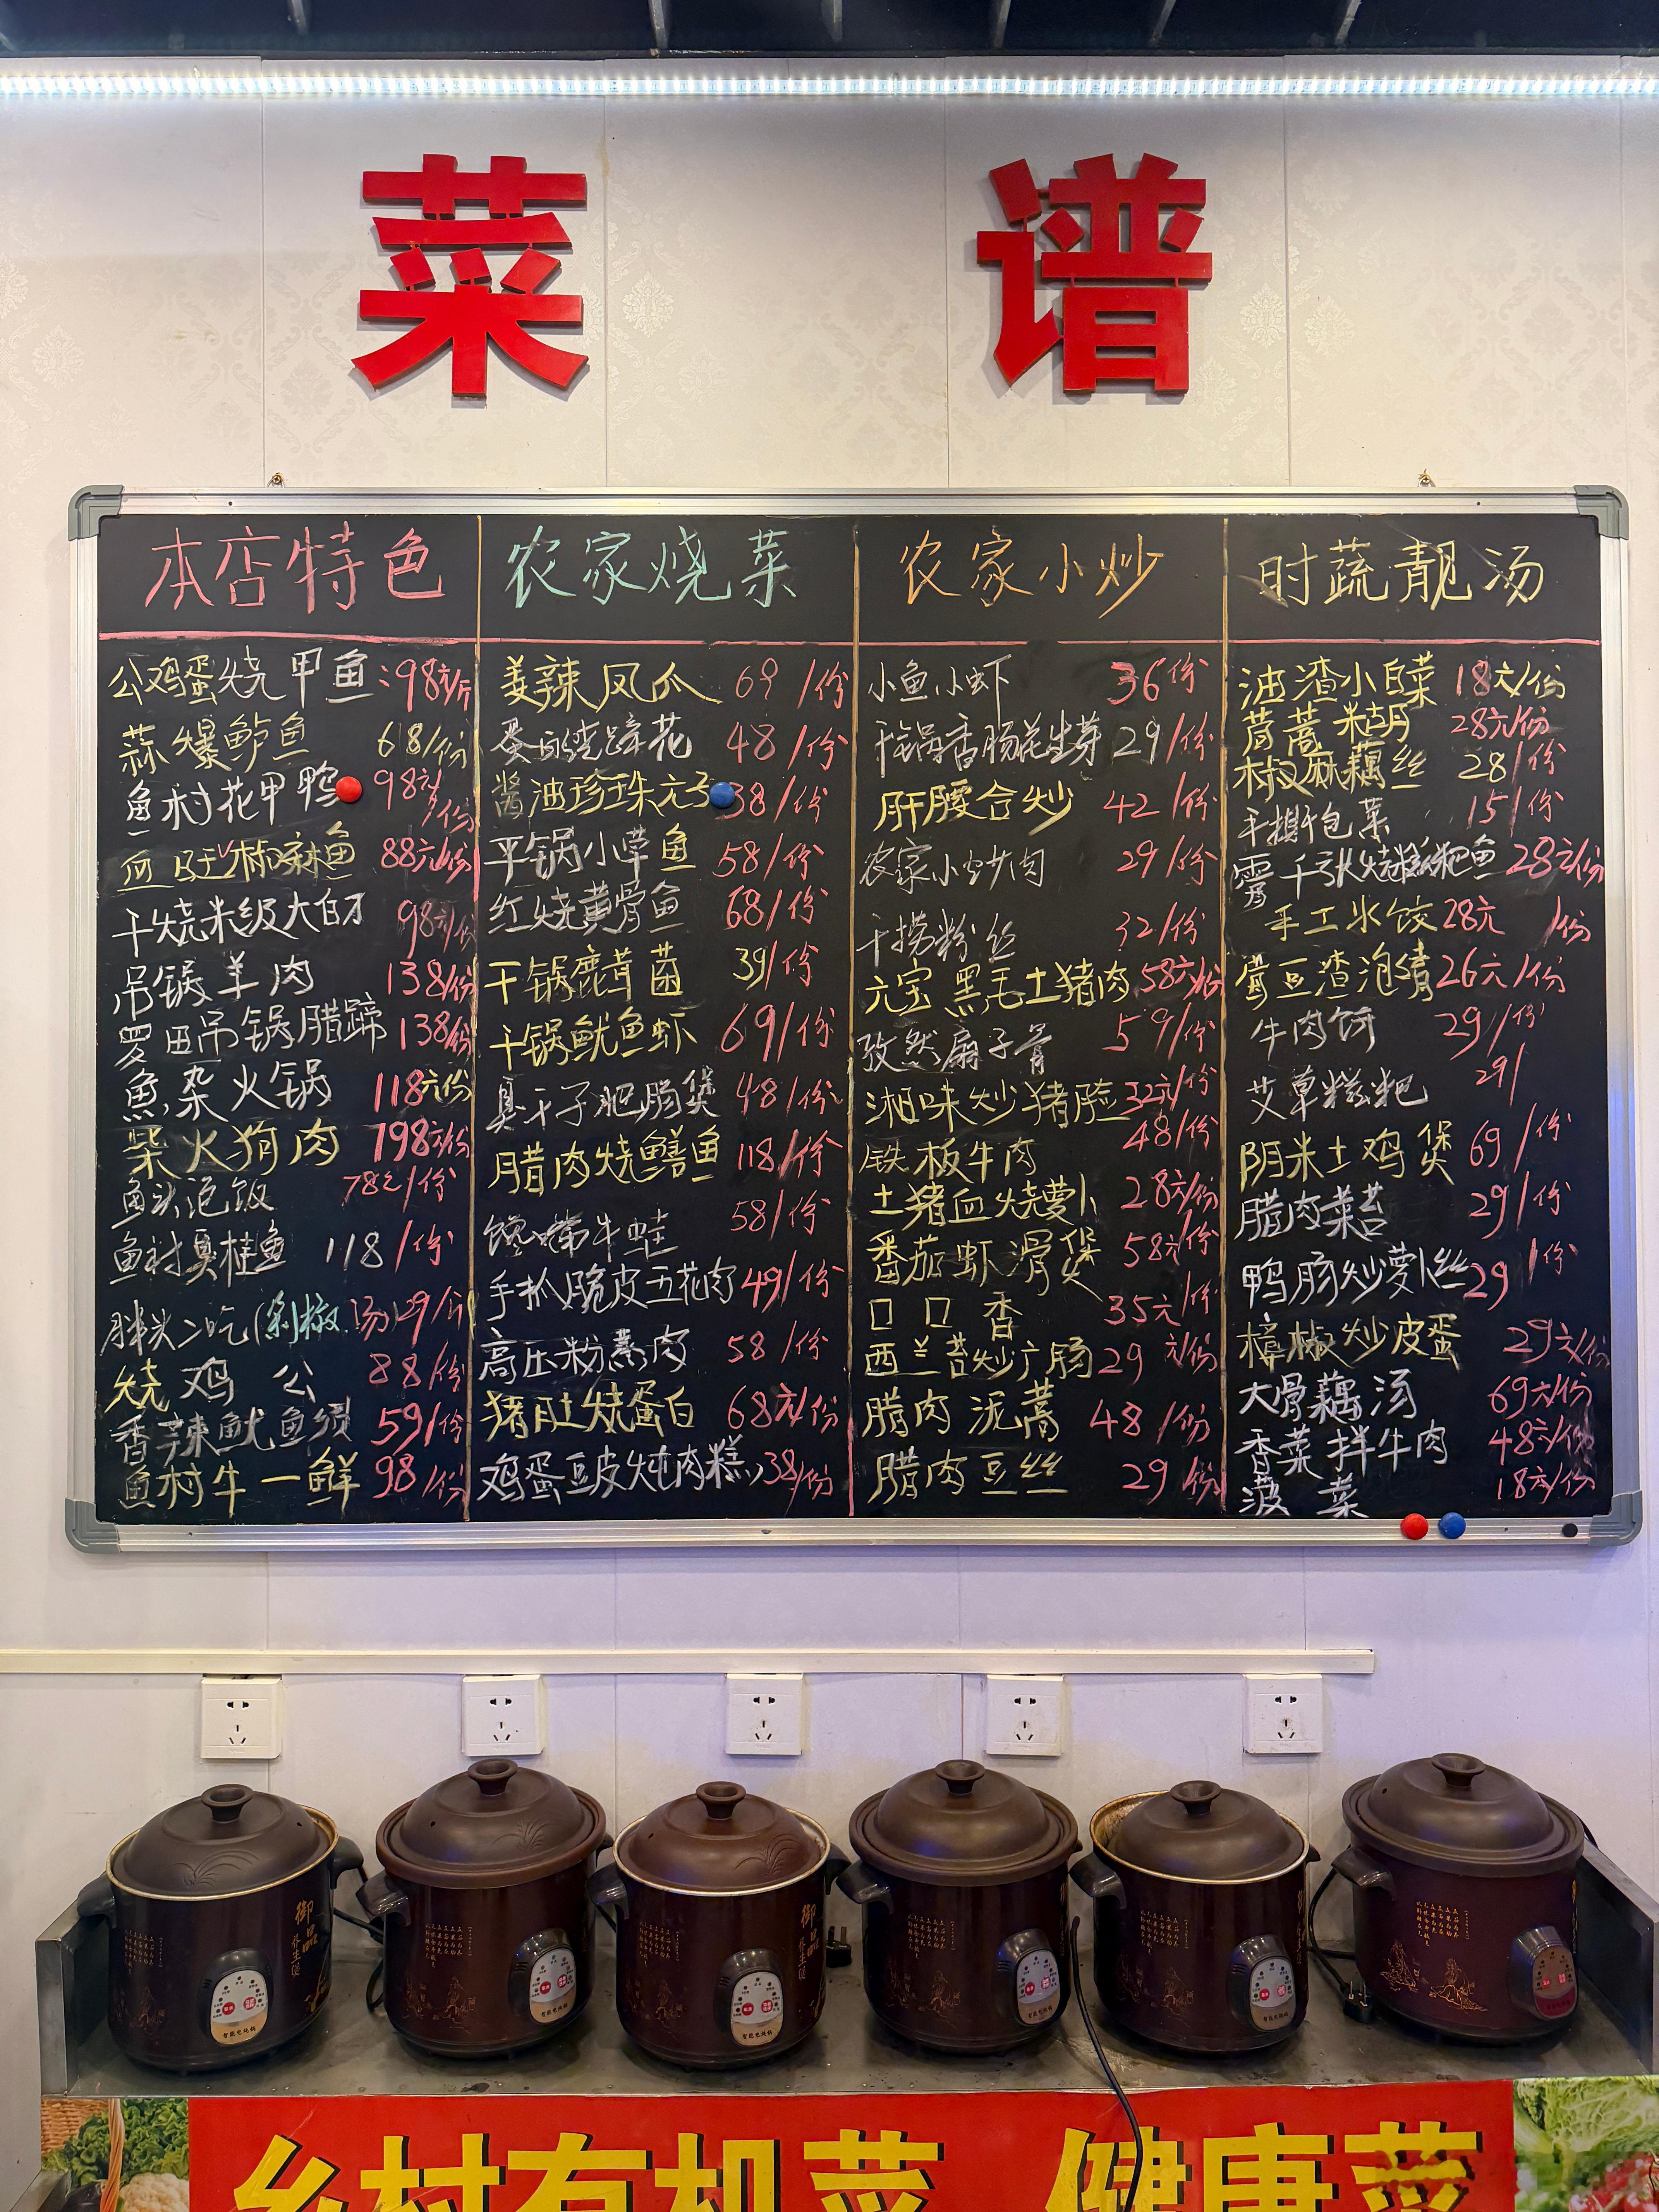 菜 谱
本店特色
公鸡蛋烧甲鱼:98元/斤
蒜爆鲈鱼 68/份
鱼村花甲鸭 98元/份
血旺椒麻鱼 88元/份
干烧米级大白刁 98元/份
吊锅羊肉 138/份
罗田吊锅腊蹄 138/份
魚杂火锅 118元/份
柴火狗肉 198元/份
鱼头泡饭 78元/份
鱼村臭桂鱼 118/份
胖头二吃(剁椒 汤)29/斤
烧鸡公 88/份
香辣鱿鱼须 59/份
鱼村牛一鲜 98/份
农家烧菜
姜辣凤爪 69/份
48/份
酱油珍珠元子 38/份
平锅小草鱼 58/份
红烧黄骨鱼 68/份
干锅鹿茸菌 39/份
干锅鱿鱼虾 69/份
臭干子肥肠煲 48/份
腊肉烧鳝鱼 118/份
馋嘴牛蛙 58/份
手扒脆皮五花肉 49/份
高压粉蒸肉 58/份
猪肚烧蛋白 68元/份
鸡蛋豆皮炖肉糕 38/份
农家小炒
小鱼小虾 36份
干锅香肠花生芽 29/份
肝腰合炒 42/份
农家小炒肉 29/份
干捞粉丝 32/份
元宝黑毛土猪肉 58元/份
孜然扇子骨 59/份
湘味炒猪脸 32元/份
铁板牛肉 48/份
土猪血烧萝卜 28元/份
番茄虾滑煲 58元/份
口口香 35元/份
西兰苔炒广肠 29元/份
腊肉泥蒿 48/份
腊肉豆丝 29/份
时蔬靓汤
油渣小白菜 18元/份
茼蒿米胡 28元/份
椒麻藕丝 28/份
手撕包菜 15/份
烧糍粑鱼 28元/份
手工水饺 28元/份
豆渣泡 26元/份
牛肉饼 29/份
艾草糍粑 29/
阴米土鸡煲 69/份
腊肉菜苔 29/份
鸭肠炒萝卜丝 29/份
樟椒炒皮蛋 29元/份
大骨藕汤 69元/份
香菜拌牛肉 48元/份
菠菜 18元/份
御品
养生煲
智能电炖锅
乡村有机菜 健康菜